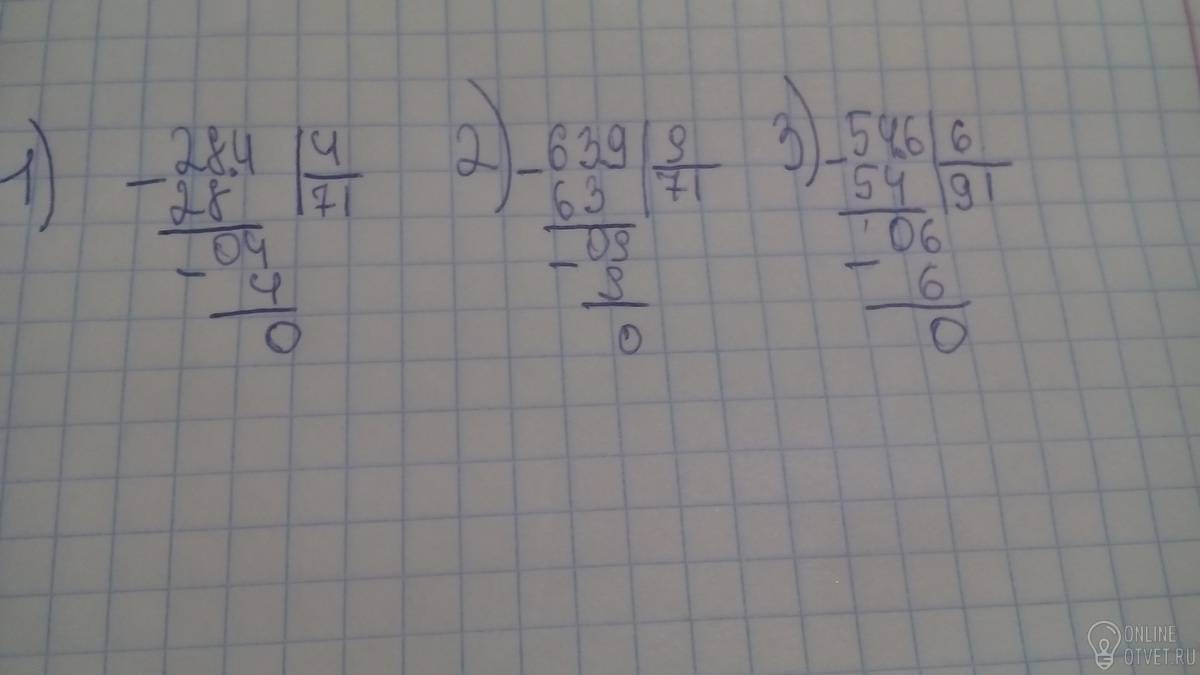 1) - 284 | 4
28 | 71
- 04
4
0
2) - 639 | 9
63 | 71
- 09
9
0
3) - 546 | 6
54 | 91
- 06
6
0
ONLINE
OTVET.RU